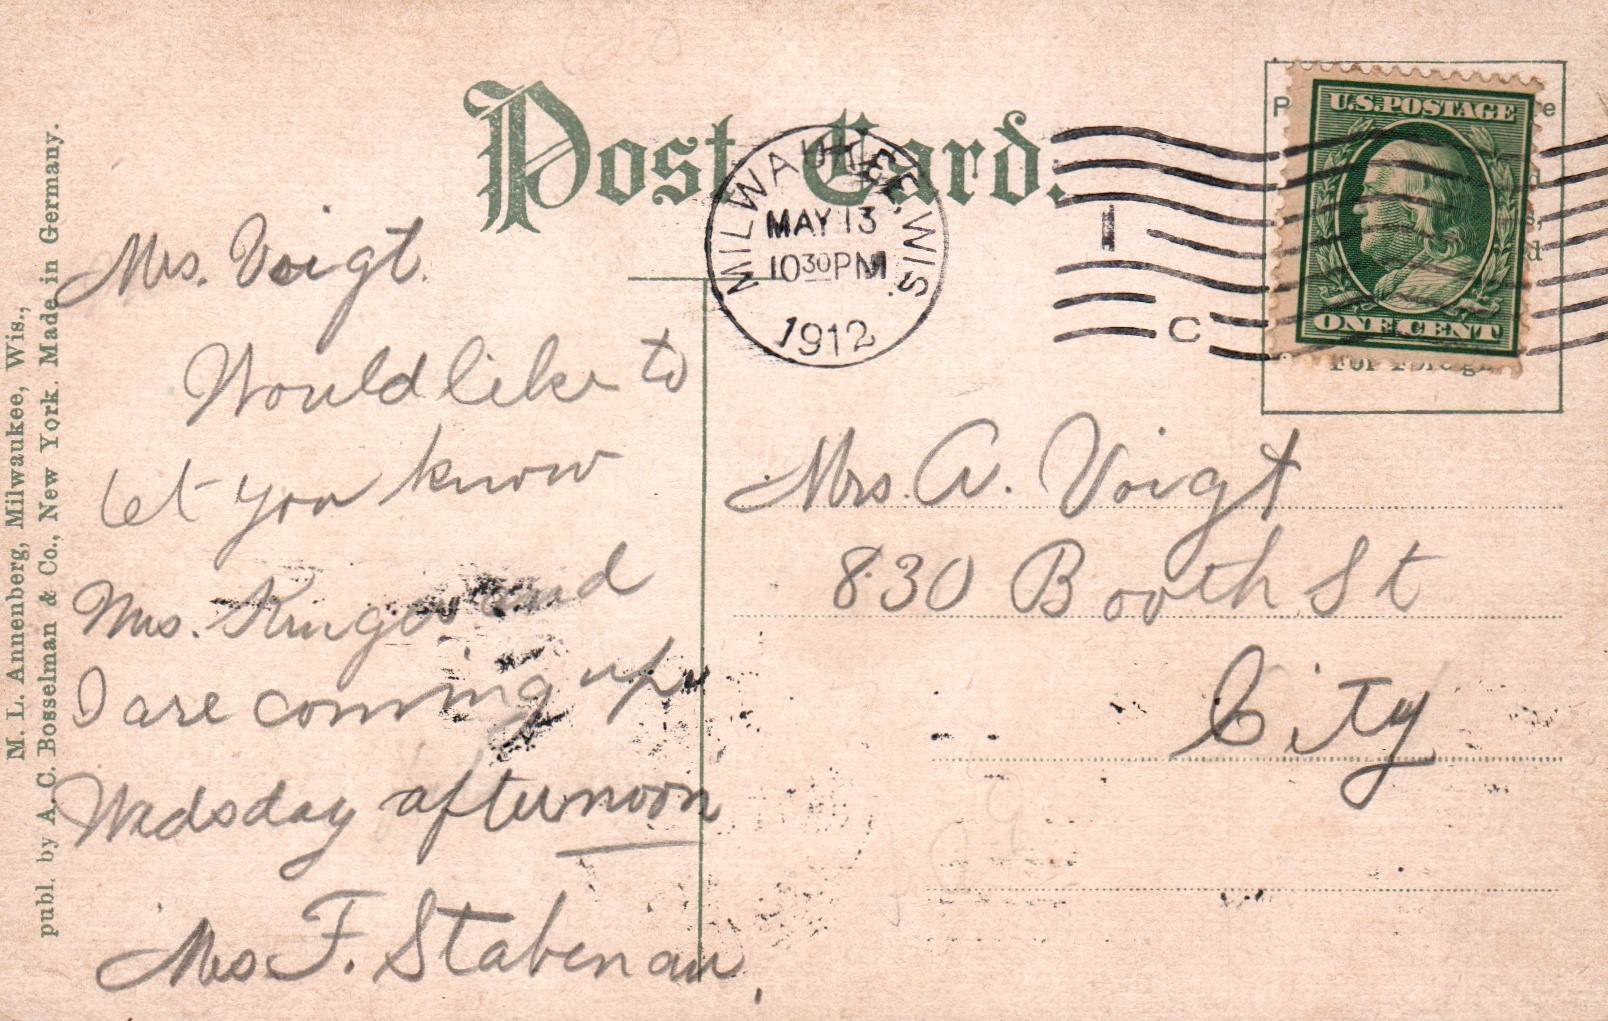 Post Card.
MILWAUKEE, WIS.
MAY 13
10 30 PM
1912
C
U.S. POSTAGE
ONE CENT
For Foreig
M. L. Annenberg, Milwaukee, Wis.,
publ. by A. C. Bosselman & Co., New York. Made in Germany.
Mrs. Voigt.
Would like to
let you know
Mrs. Kruger and
I are coming up
Wedsday afternoon
Mrs F. Stabenau
Mrs. A. Voigt
830 Booth St
City